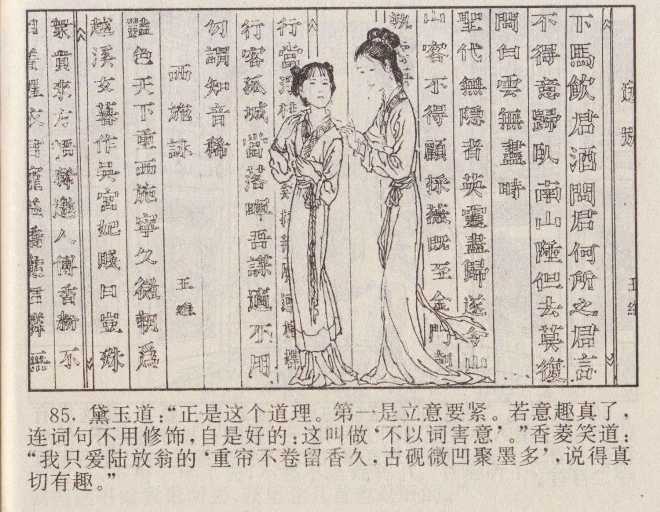 送别 王維
下馬飲君酒問君何所之君言
不得意歸臥南山陲但去莫復
問白雲無盡時
聖代無隱者英靈盡歸遂令山
山客不得顧採薇既至金門
行當浮
行客孤城當落暉吾謀適不用
勿謂知音稀
西施詠 王維
豔色天下重西施寧久微朝爲
越溪女暮作吳宮妃賤日豈殊
衆貴來方悟稀邀人傅香粉不
羅衣君寵益嬌態君憐無
85. 黛玉道：“正是这个道理。第一是立意要紧。若意趣真了，
连词句不用修饰，自是好的；这叫做‘不以词害意’。”香菱笑道：
“我只爱陆放翁的‘重帘不卷留香久，古砚微凹聚墨多’，说得真
切有趣。”